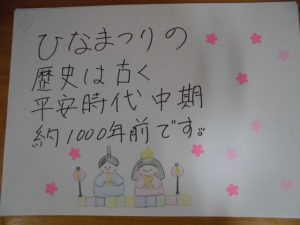 ひなまつりの
歴史は古く
平安時代中期
約1000年前です。